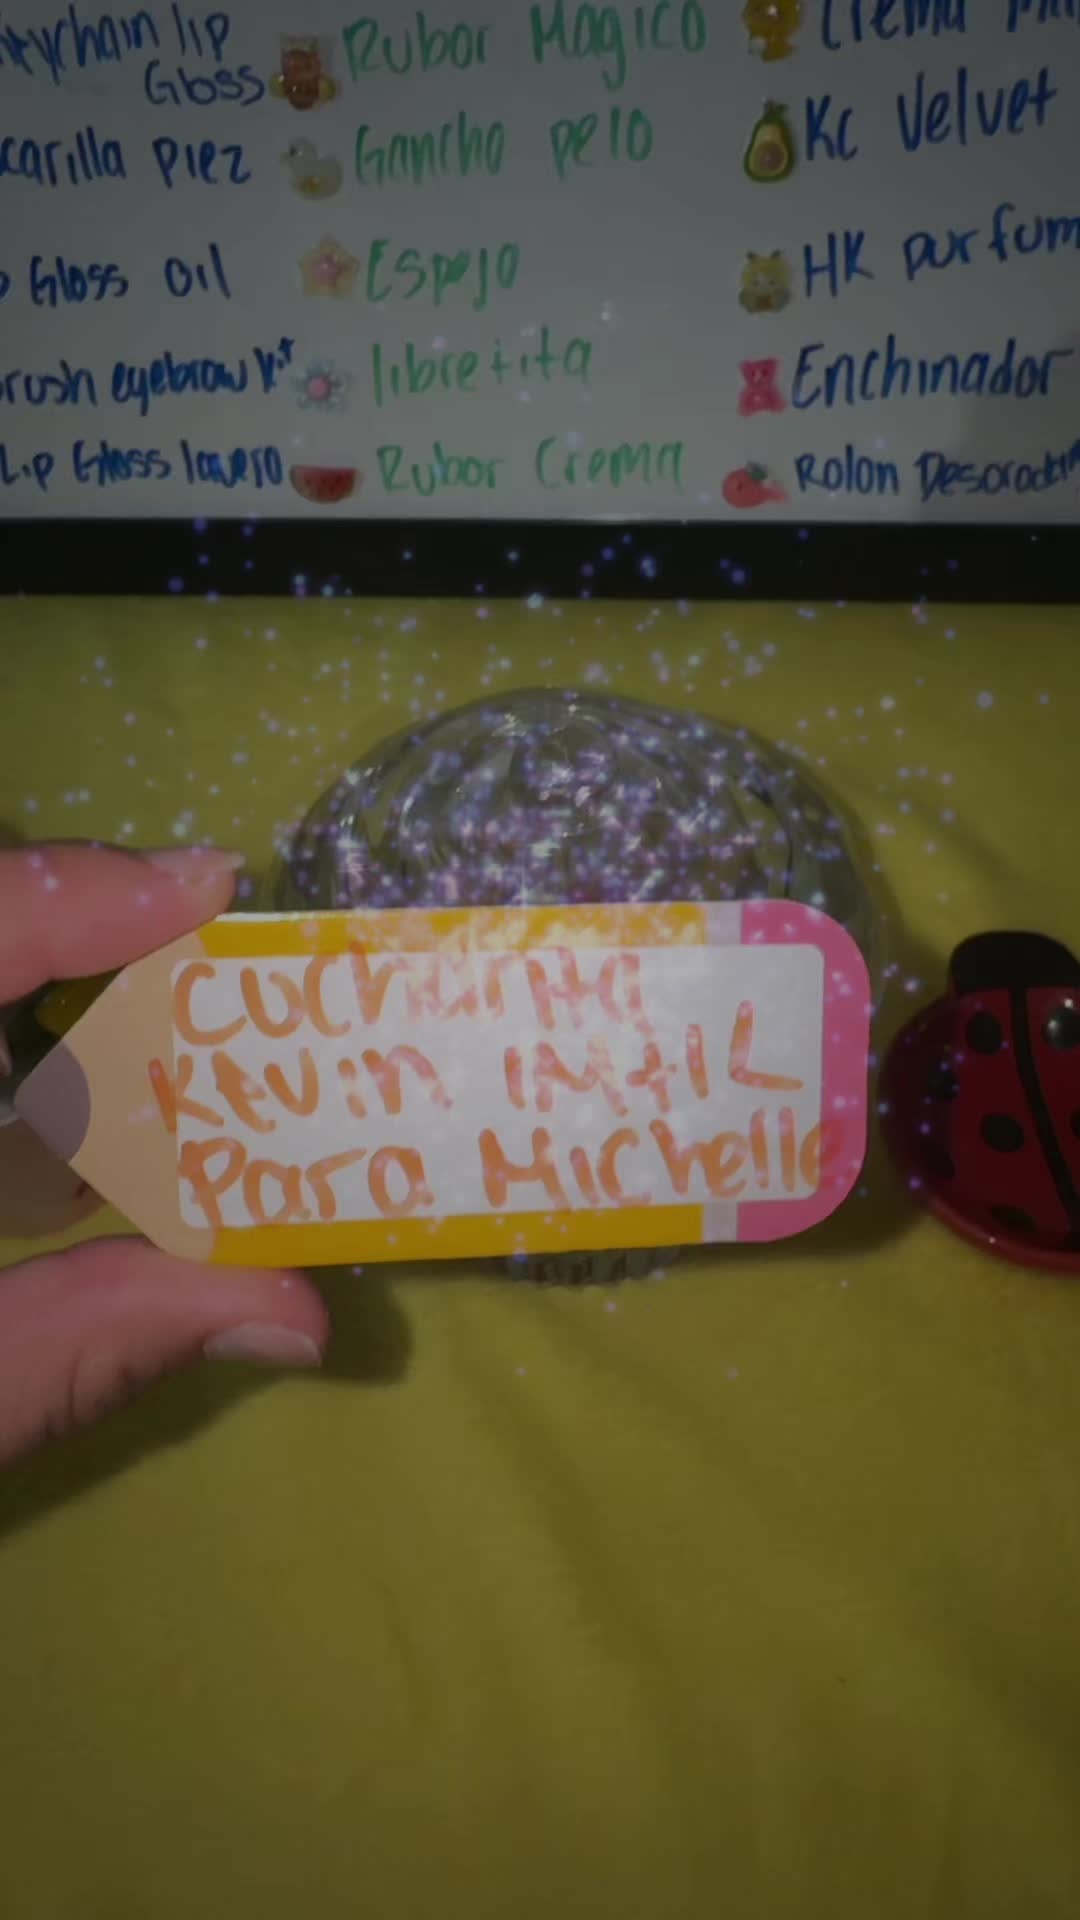 keychain lip Gloss
Rubor Magico
Crema
carilla Piez
Gancho pelo
Kc Velvet
Gloss Oil
Espejo
HK purfum
rush eyebrow kit
libretita
Enchinador
Lip Gloss lavero
Rubor Crema
Rolon
Cucharita
Kevin
Para Michelle